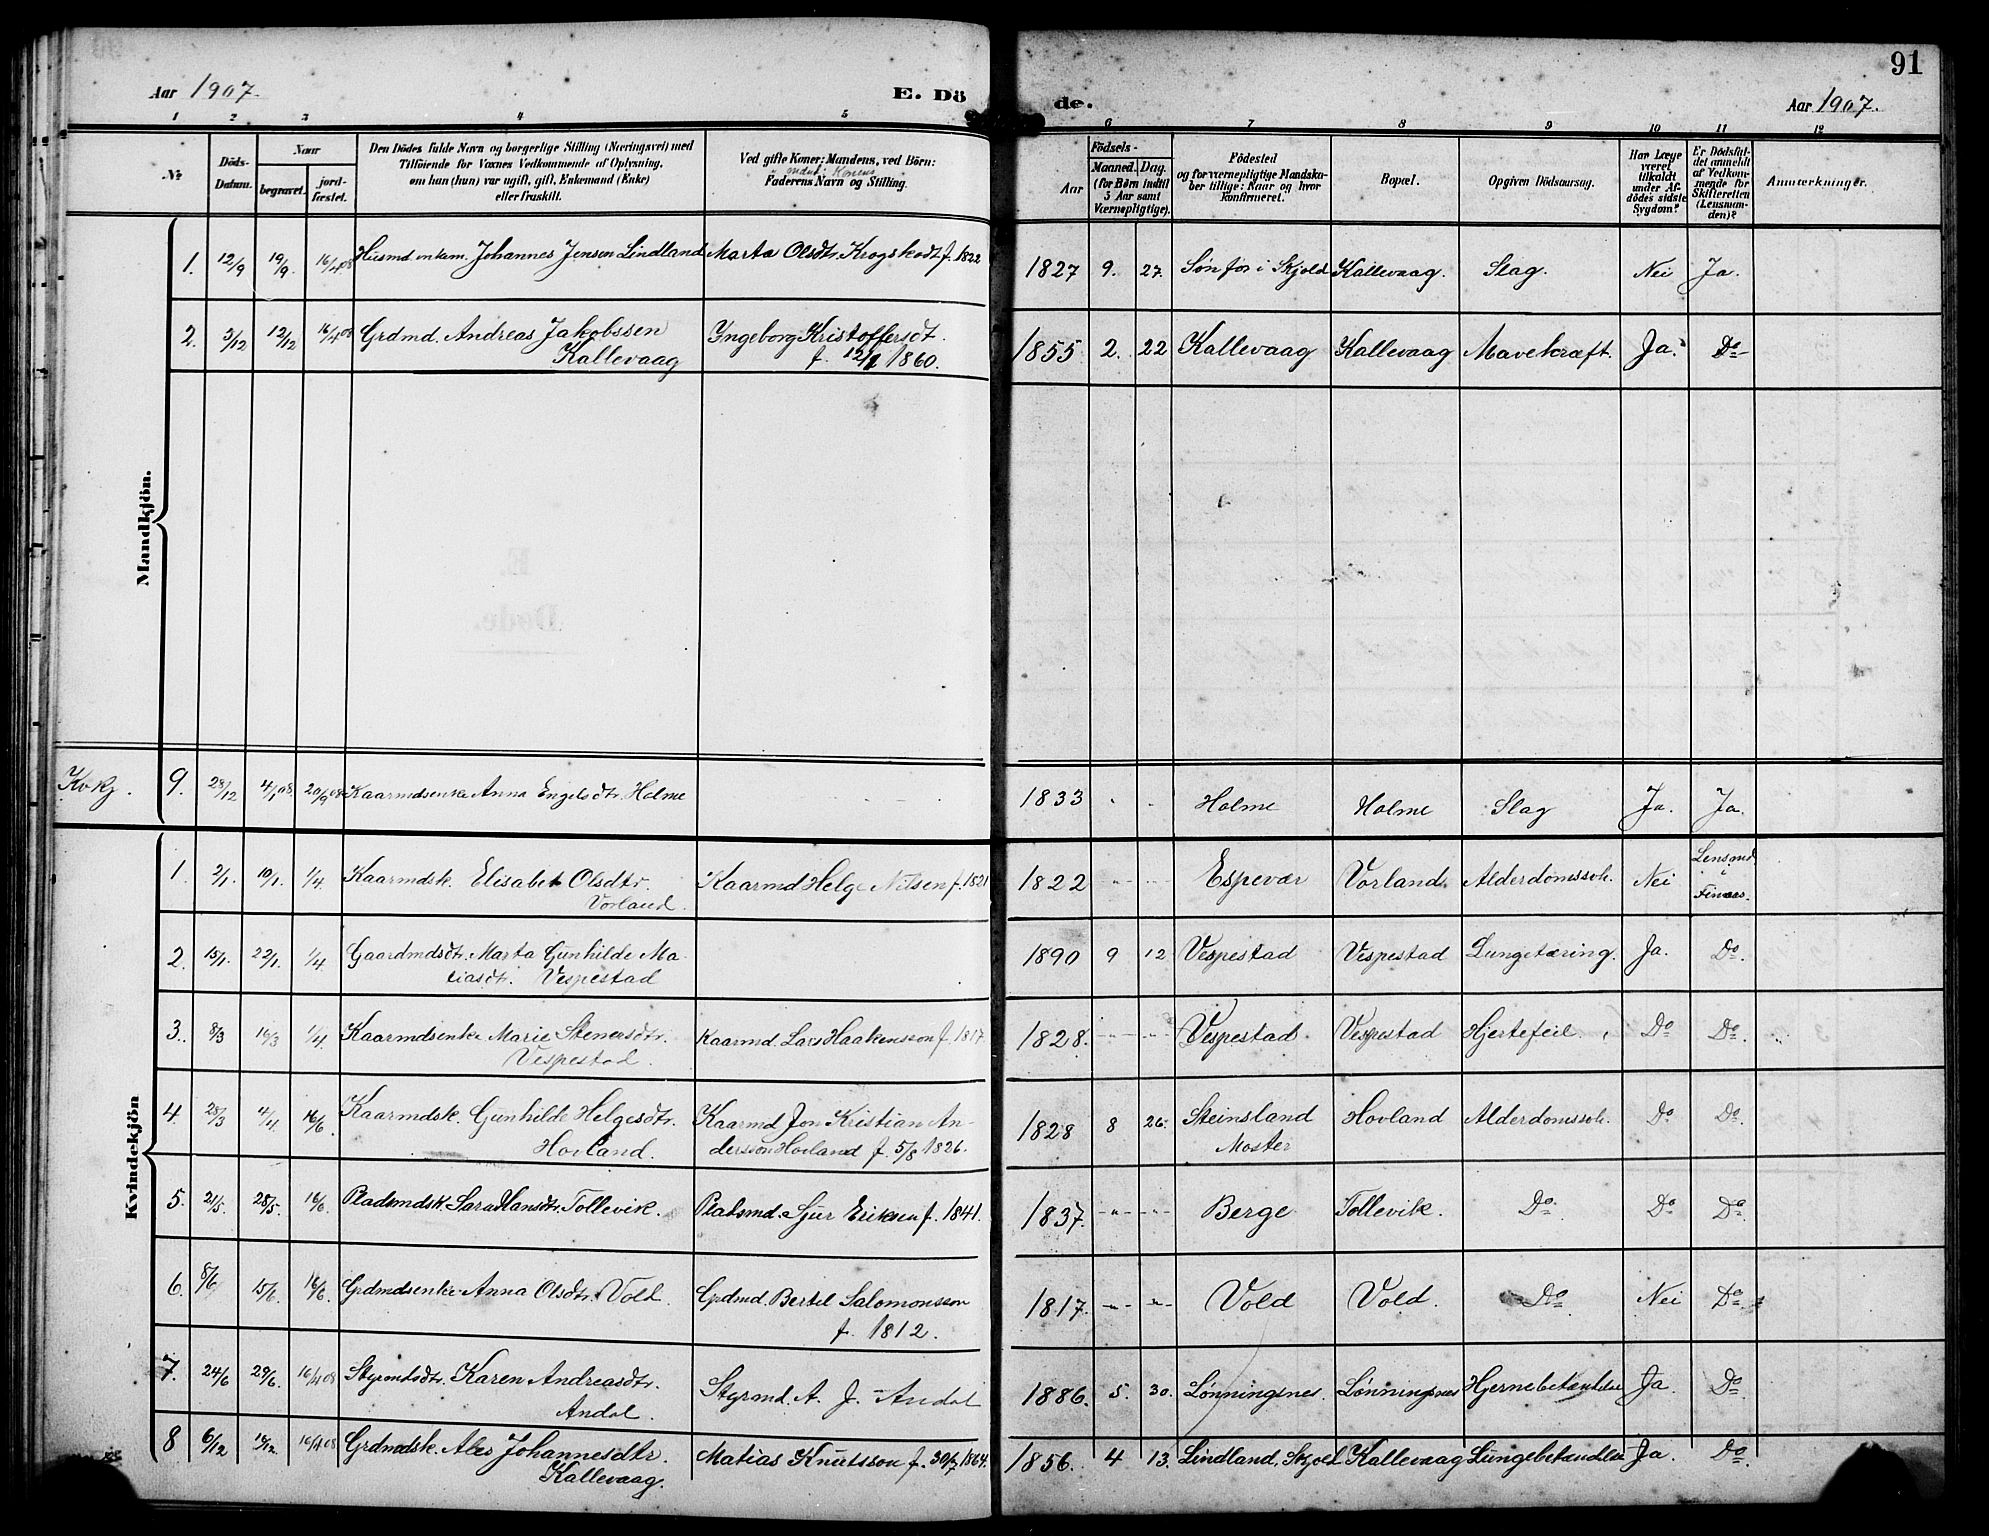 91
Aar 1907.
E. Dö
de.
Aar 1907.
1 2 3 4 5 6 7 8 9 10 11 12
№
Döds-
Datum.
Naar
begravet.
jord-
fæstet.
Den Dödes fulde Navn og borgerlige Stilling (Næringsvei) med
Tilföiende for Voxnes Vedkommende af Oplysning,
om han (hun) var ugift, gift, Enkemand (Enke)
eller fraskilt.
Ved gifte Koner: Mandens, ved Börn:
Faderens Navn og Stilling.
Aar
Födsels-
Maaned. Dag.
(for Børn indtil
5 Aar samt
Værnepligtige).
Födested
og for værnepligtige Mandska-
ber tillige: Naar og hvor
konfirmeret.
Bopæl.
Opgiven Dödsaarsag.
Har Læge
været
tilkaldt
under Af-
dödes sidste
Sygdom?
Er Dödsfal-
det anmeldt
af Vedkom-
mende for
Skifteretten
(Lensman-
den)?
Anmærkninger.
Mandkjön.
1. 12/9 19/9. 16/4 08 Husmd enkem. Johannes Jensen Lindland Marta Olsdtr. Krogskodt f. 1822 1827 9. 27. Sønfor i Skjold Kallevaag. Slag. Nei Ja.
2. 3/12 12/12 16/4 08 Grdmd. Andreas Jakobssen Yngeborg Kristoffersdt. 1855 2. 22 Kallevaag Kallevaag Mavekræft. Ja. Do
Kallevaag f. 1860.
Kvkj. 9. 28/12 4/1 08. 20/9 08 Kaarmdsenke Anna Engelsdtr. Holme 1833 Holme Holme Slag Ja. Ja.
Kvindekjön
1. 2/1. 10/1. 1/4. Kaarmdsk. Elisabet Olsdtr. Kaarmd Helge Nilsen f. 1821 1822 - - Espevær Vorland. Alderdomssvk. Nei Lensmd.
Vorland. i
Finaas.
2. 15/1. 22/1. 1/4. Gaardmdsdtr. Marta Gunhilde Ma- 1890 9 12 Vespestad Vespestad Lungetæring. Ja. Do.
tiasdtr. Vespestad
3. 8/3 16/3 1/4. Kaarmdsenke Marie Stenersdtr. Kaarmd. Lars Haakensson f. 1817. 1828. Vespestad. Vespestad Hjertefeil. Do Do.
Vespestad.
4. 28/3 4/4. 16/6. Kaarmdsk. Gunhilde Helgesdtr. Kaarmd Jon Kristian An- 1828 8 26. Steinsland Hovland Alderdomssvk. Do Do.
Hovland. dersson Hovland f. 5/8 1826. Moster
5. 21/5. 28/5. 16/6. Pladsmdsk. Sara Hansdtr. Tollevik. Pladsmd. Sjur Eriksen f. 1841. 1837. Berge Tollevik. Do Do Do.
6. 8/6 15/6. 16/6. Grdmdsenke Anna Olsdtr. Vold. Grdmd. Bertel Salomonsson 1817. Vold Vold. Do. Nei Do.
f. 1812.
7. 24/6 29/6. 16/4 08 Styrmdsdtr. Karen Andreasdtr. Styrmd. A. J. Andal 1886. 5. 30. Lønningsnes. Lønningsnes Hjernebetændelse Ja. Do
Andal.
8 6/12 16/4 08 Grdmdsk. Johannesdtr. Matias Knutsson f. 30/7 1864. 1856. 4 13. Lindland, Skjold Kallevaag Lungebetændelse Ja. Do.
Kallevaag.